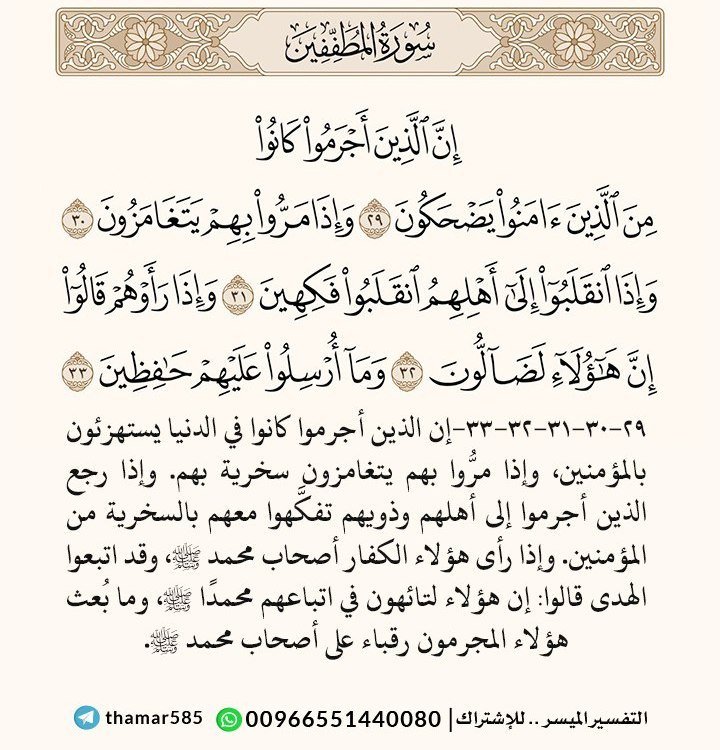 سُورَةُ المُطَفِّفِينَ
إِنَّ ٱلَّذِينَ أَجْرَمُوا۟ كَانُوا۟
مِنَ ٱلَّذِينَ ءَامَنُوا۟ يَضْحَكُونَ ٢٩ وَإِذَا مَرُّوا۟ بِهِمْ يَتَغَامَزُونَ ٣٠
وَإِذَا ٱنقَلَبُوٓا۟ إِلَىٰٓ أَهْلِهِمُ ٱنقَلَبُوا۟ فَكِهِينَ ٣١ وَإِذَا رَأَوْهُمْ قَالُوٓا۟
إِنَّ هَـٰٓؤُلَآءِ لَضَآلُّونَ ٣٢ وَمَآ أُرْسِلُوا۟ عَلَيْهِمْ حَـٰفِظِينَ ٣٣
٢٩-٣٠-٣١-٣٢-٣٣-إن الذين أجرموا كانوا في الدنيا يستهزئون
بالمؤمنين، وإذا مرُّوا بهم يتغامزون سخرية بهم. وإذا رجع
الذين أجرموا إلى أهلهم وذويهم تفكَّهوا معهم بالسخرية من
المؤمنين. وإذا رأى هؤلاء الكفار أصحاب محمد ﷺ، وقد اتبعوا
الهدى قالوا: إن هؤلاء لتائهون في اتباعهم محمدًا ﷺ، وما بُعث
هؤلاء المجرمون رقباء على أصحاب محمد ﷺ.
التفسير الميسر .. للإشتراك | 00966551440080 thamar585